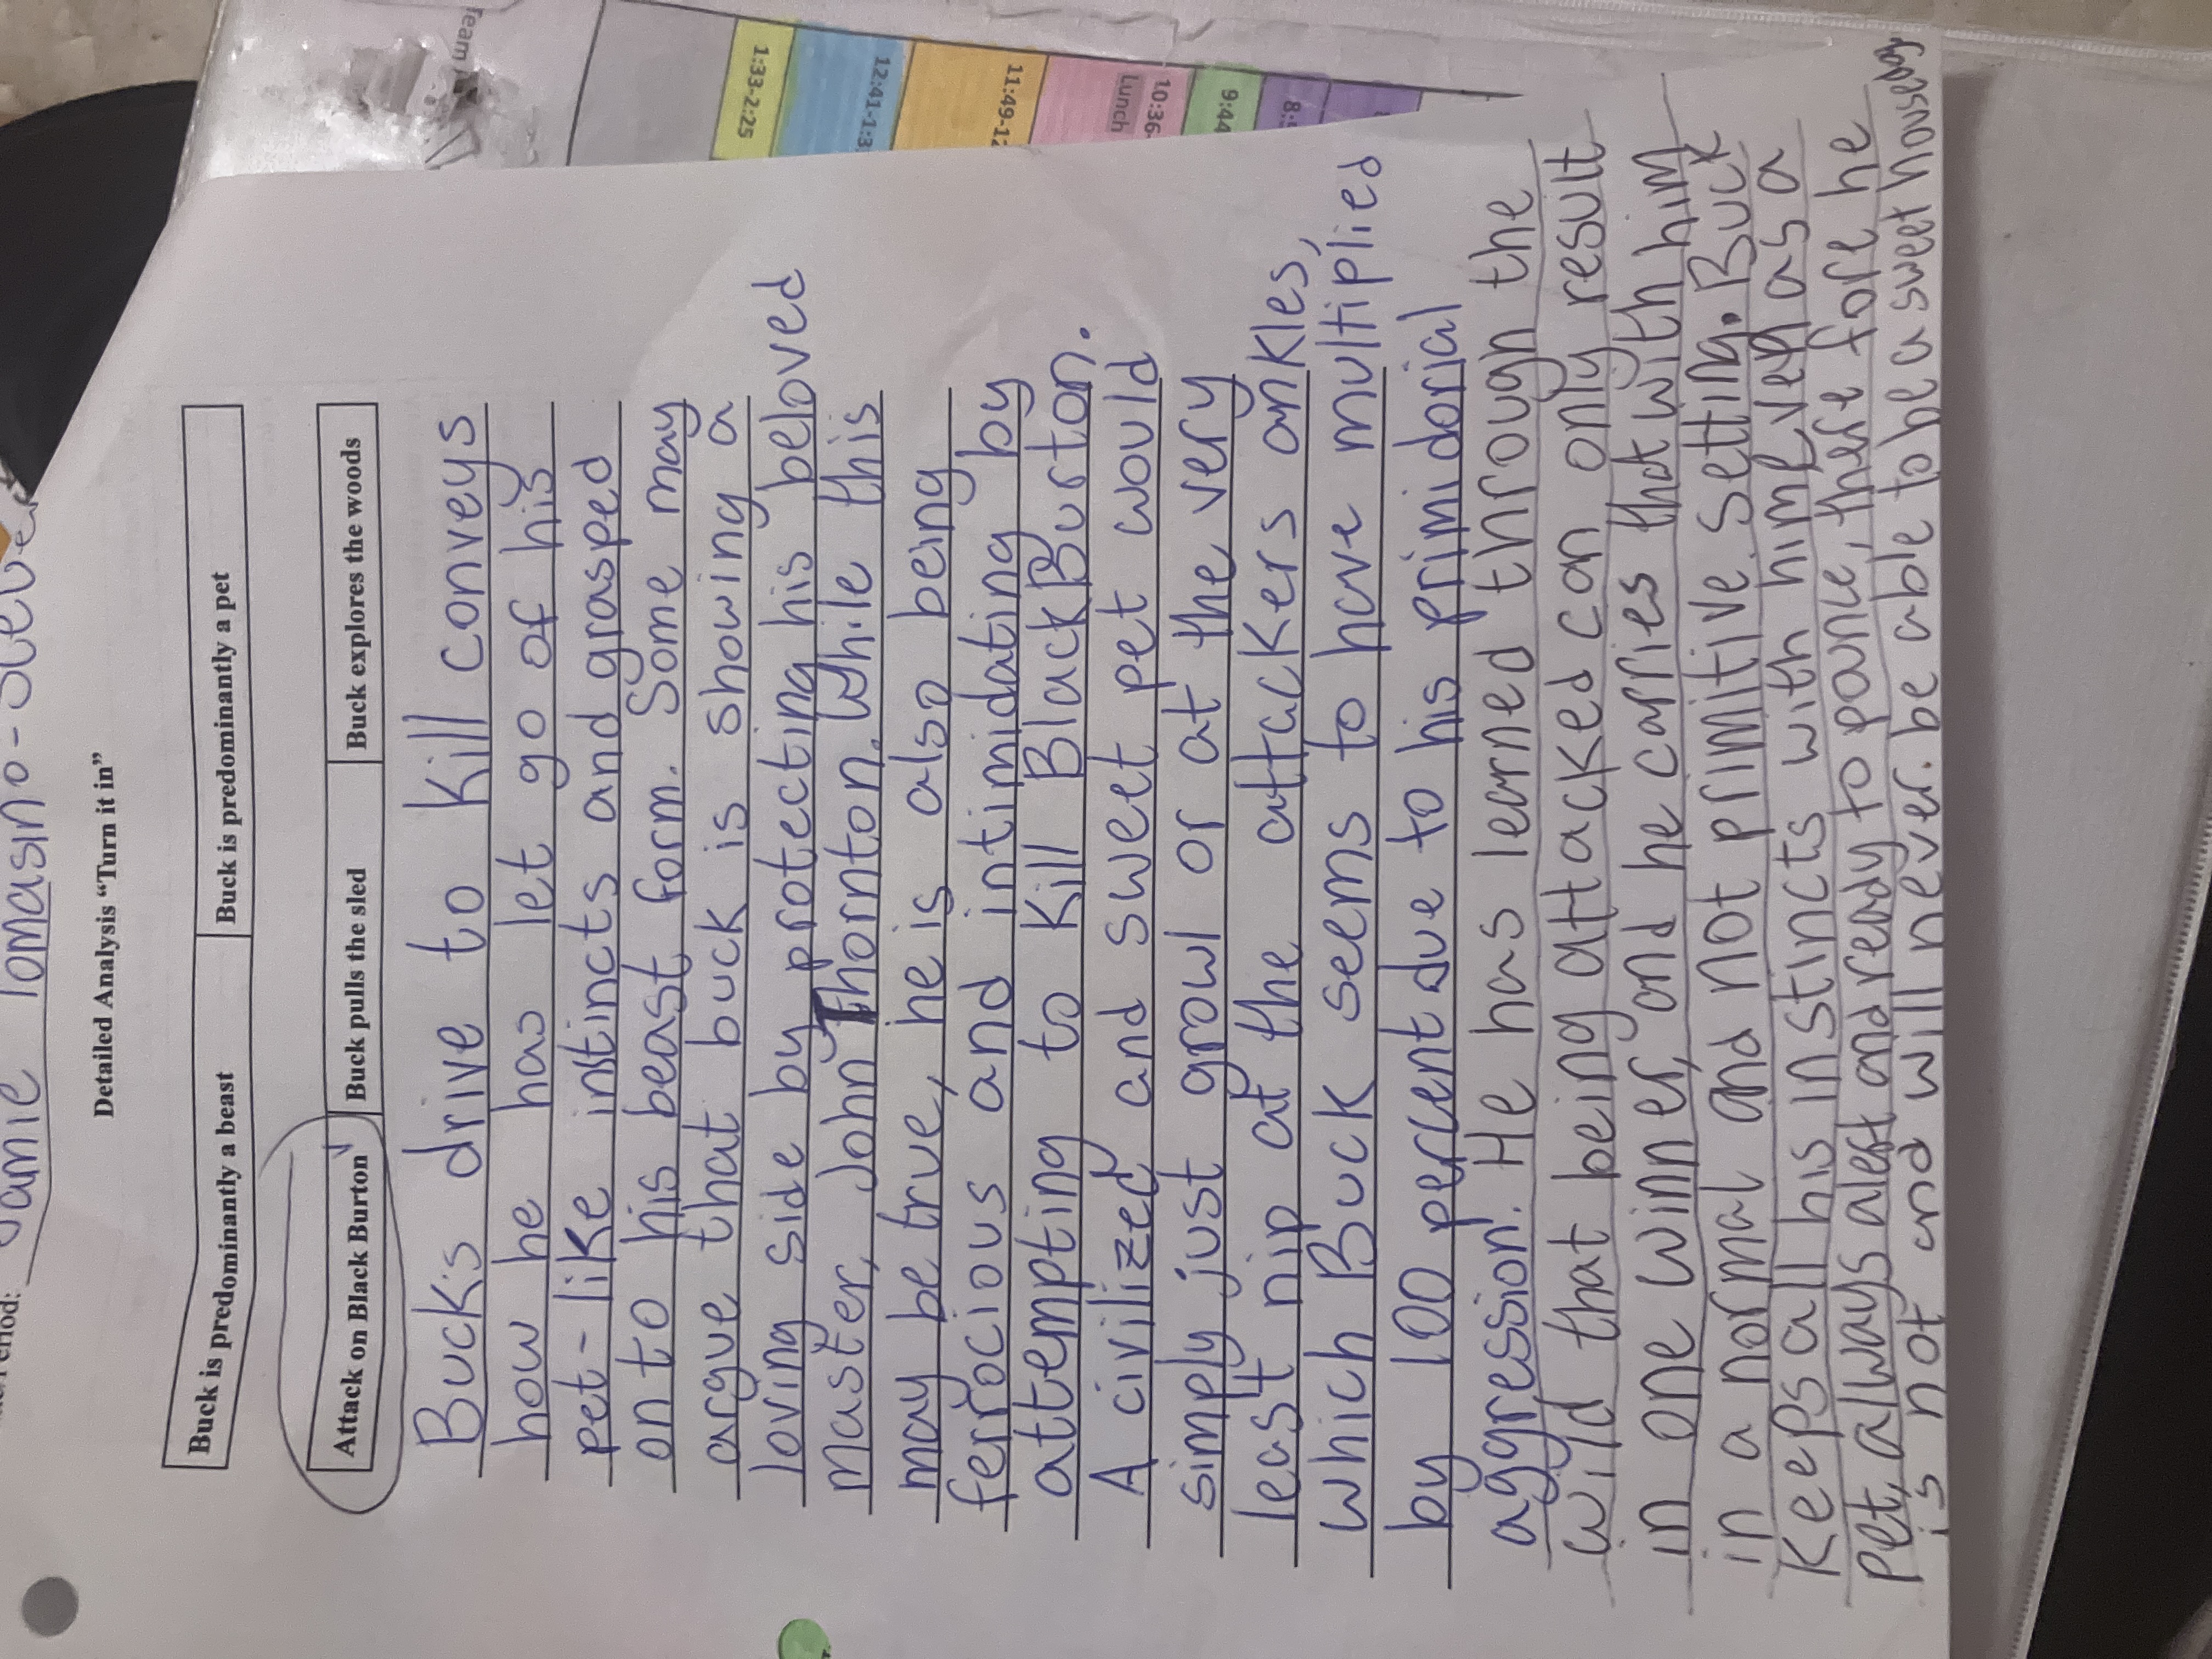 Period:
Jamie Tomasino-
Detailed Analysis “Turn it in”
Buck is predominantly a beast
Buck is predominantly a pet
Attack on Black Burton
Buck pulls the sled
Buck explores the woods
Buck's drive to kill conveys
how he has let go of his
pet-like instincts and grasped
on to his beast form. Some may
argue that buck is showing a
loving side by protecting his beloved
master, John Thornton. While this
may be true, he is also being
ferocious and intimidating by
attempting to kill Black Burton.
A civilized and sweet pet would
simply just growl or at the very
least nip at the attackers ankles,
which Buck seems to have multiplied
by 100 percent due to his primidorial
aggression. He has learned through the
wild that being attacked can only result
in one winner, and he carries that with him
in a normal and not primitive setting. Buck
keeps all his instincts with him even as a
pet, always alert and ready to pance, there fore he
is not and will never be able to be a sweet housedog
Team
1:33-2:25
12:41-1:3
11:49-12
10:36-
Lunch
9:44
8:5